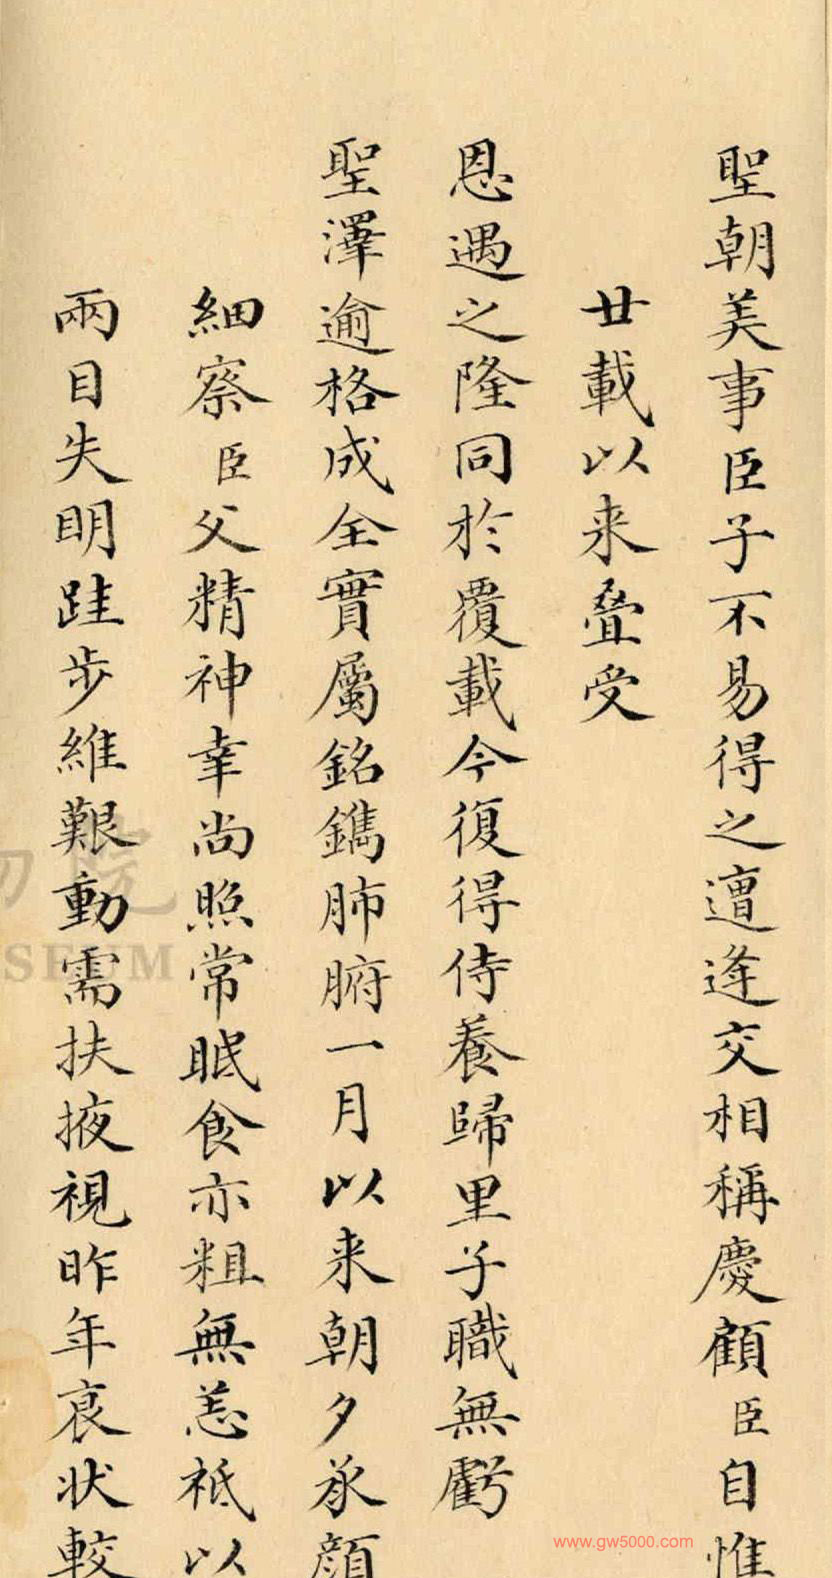 聖朝美事臣子不易得之遭逢交相稱慶顧臣自惟
廿載以来叠受
恩遇之隆同於覆載今復得侍養歸里子職無虧
聖澤逾格成全實屬銘鐫肺腑一月以来朝夕承顔
細察臣父精神幸尚照常眠食亦粗無恙祇以
兩目失明跬步維艱動需扶掖視昨年衰状較
院
SEUM
www.gw5000.com